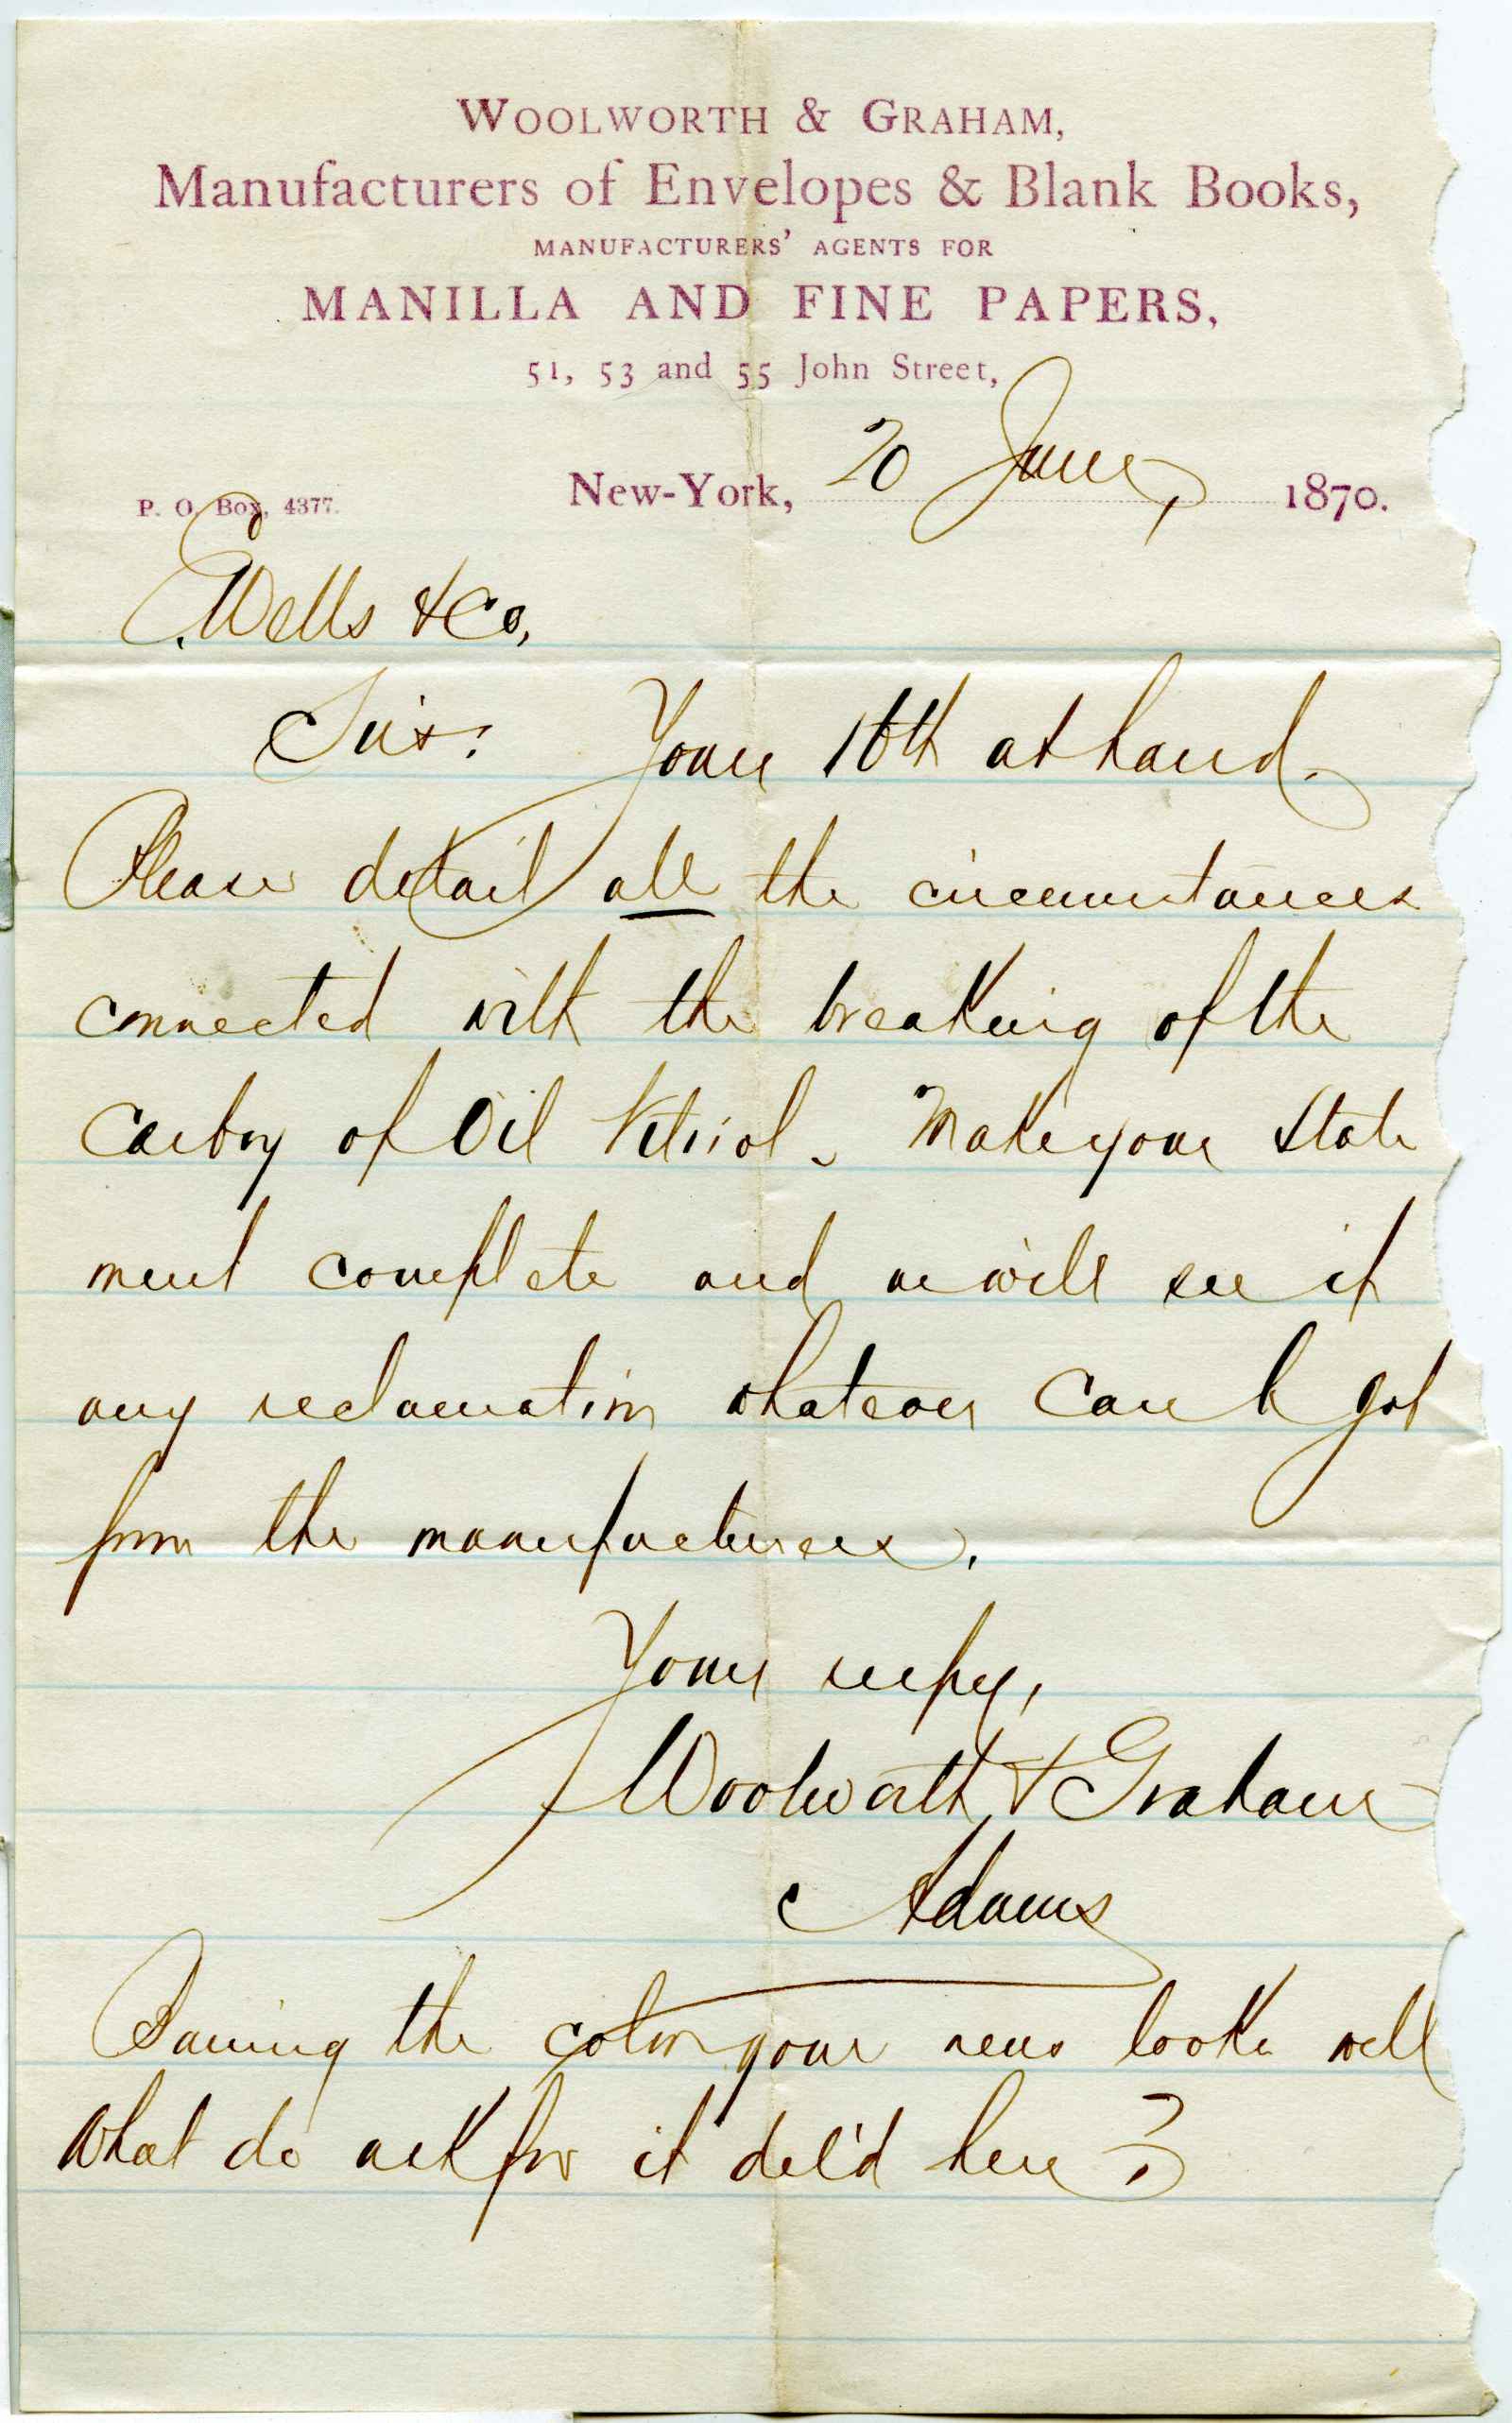 WOOLWORTH & GRAHAM,
Manufacturers of Envelopes & Blank Books,
MANUFACTURERS' AGENTS FOR
MANILLA AND FINE PAPERS,
51, 53 and 55 John Street,
P. O. Box, 4377. New-York, 20 June, 1870.
C. Wells & Co,
Sirs: Yours 16th at hand.
Please detail all the circumstances
connected with the breaking of the
Carboy of Oil Vitriol. Make your state
ment complete and we will see if
any reclamation whatever can be got
from the manufacturers.
Yours respy,
Woolworth & Graham
Adams
Barring the color your news looks well
What do ask for it del'd here?